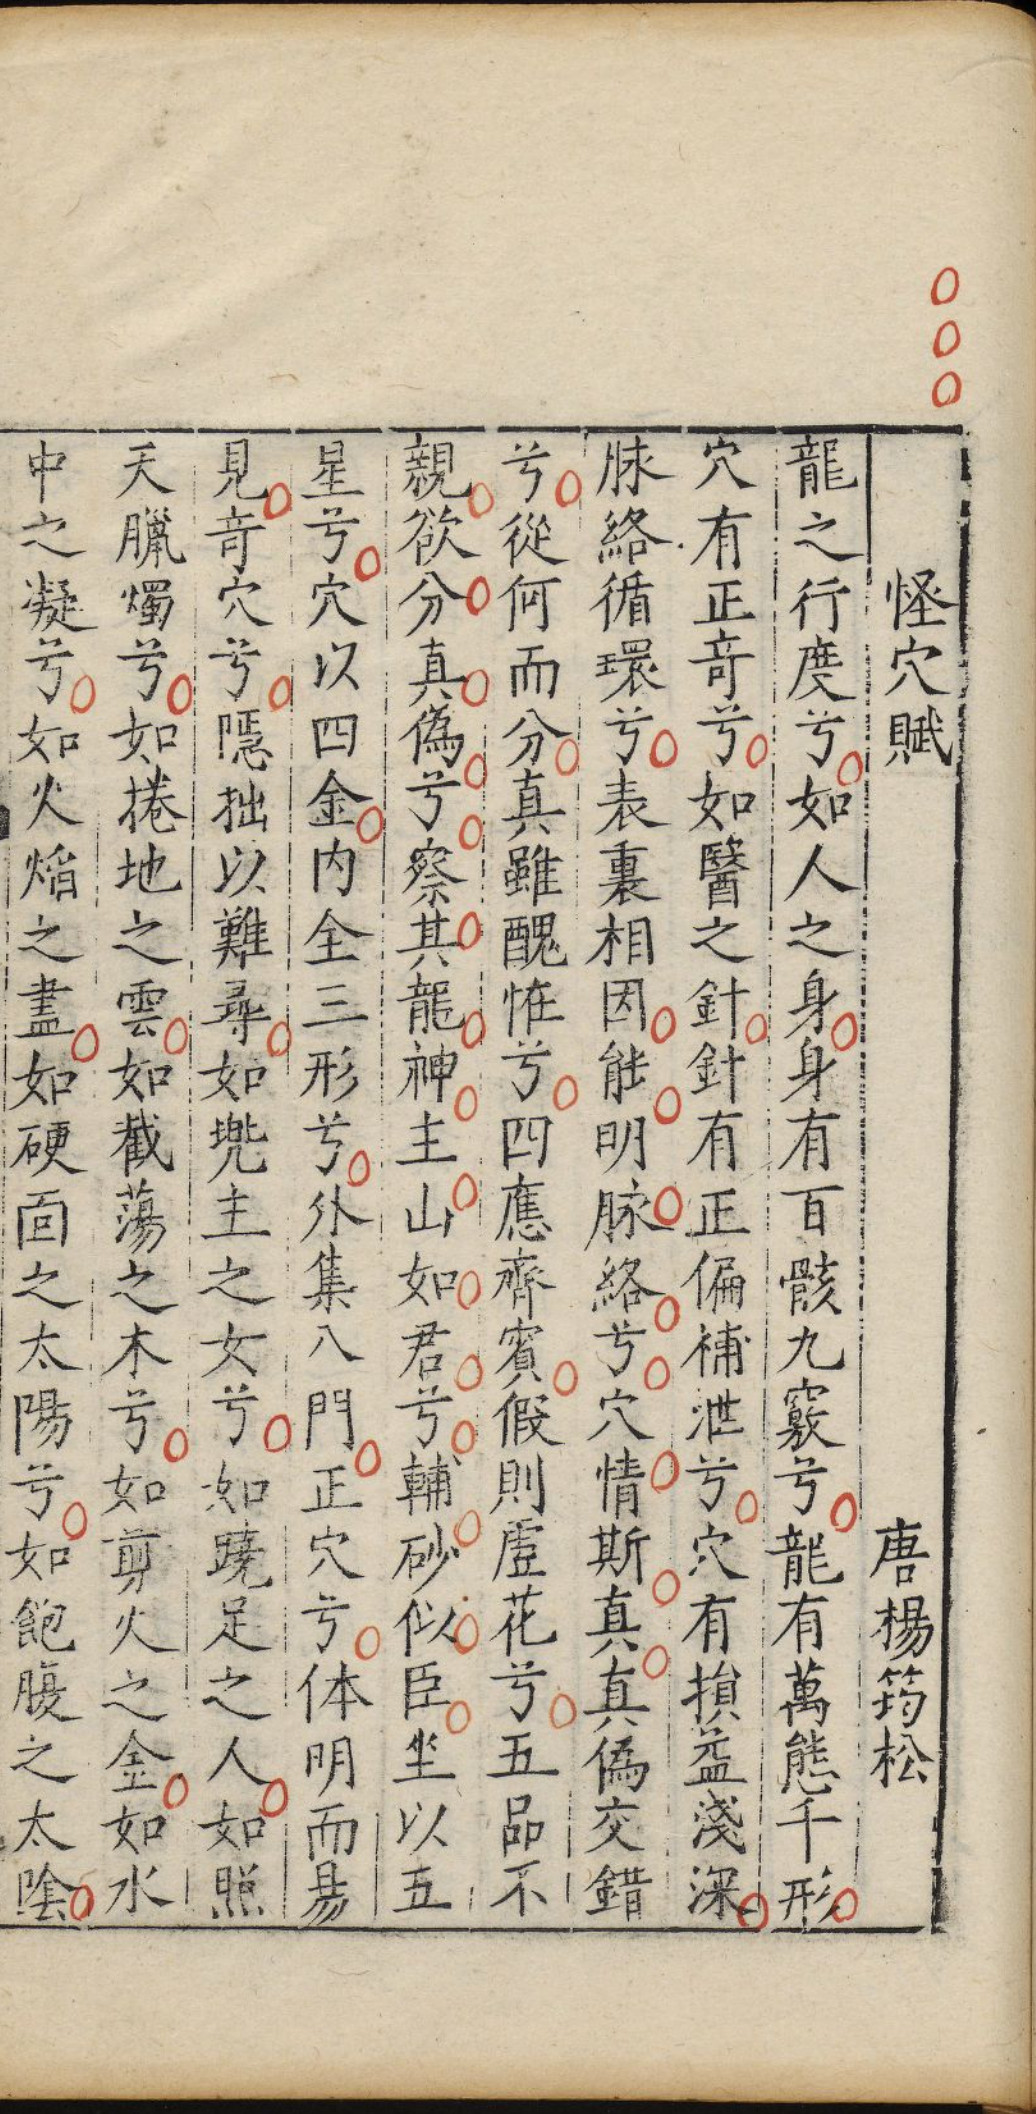 怪穴賦　唐楊筠松
龍之行度兮如人之身身有百骸九竅兮龍有萬態千形
穴有正竒兮如醫之針針有正偏補泄兮穴有損益淺深
脉絡循環兮表裏相因能明脉絡兮穴情斯真真偽交錯
兮從何而分真雖醜恠兮四應齊賓假則虛花兮五品不
親欲分真偽兮察其龍神主山如君兮輔砂似臣坐以五
星兮穴以四金内全三形兮外集八門正穴兮体明而昜
見竒穴兮隱拙以難尋如兠主之女兮如蹺足之人如照
天臘燭兮如捲地之雲如截蕩之木兮如剪火之金如水
中之凝兮如火焰之盡如硬面之太陽兮如飽腹之太陰